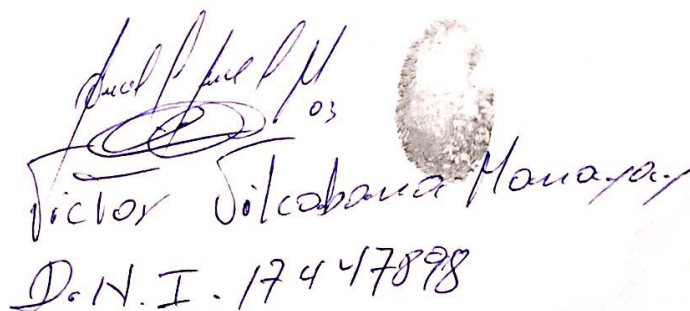 03
Victor Vilcabana Manayay
D.N.I. 17447898